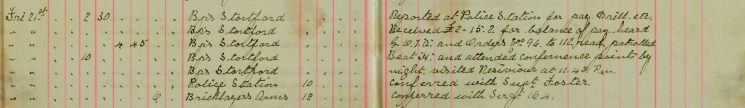 Fri 21st . . 2 30 . . Bps Stortford . . . Reported at Police Station for pay. Drill. etc.
" " . . . . . . Bps Stortford . . . Received £2-15-2. for balance of pay. heard
" " . . . 4 45 . . Bps Stortford . . . G.O. and Orders No. 96. to 112 read. patrolled
" " . . 10 . . . . Bps Stortford . . . Beat and attended conference points by
" " . . . . . . Bps Stortford . . . night. visited at 11.45 P.m.
" " . . . . . . Police Station 10 . . Conferred with Supt Foster.
" " . . . . . 6 Bricklayers Arms 12 . . Conferred with Sergt 164.